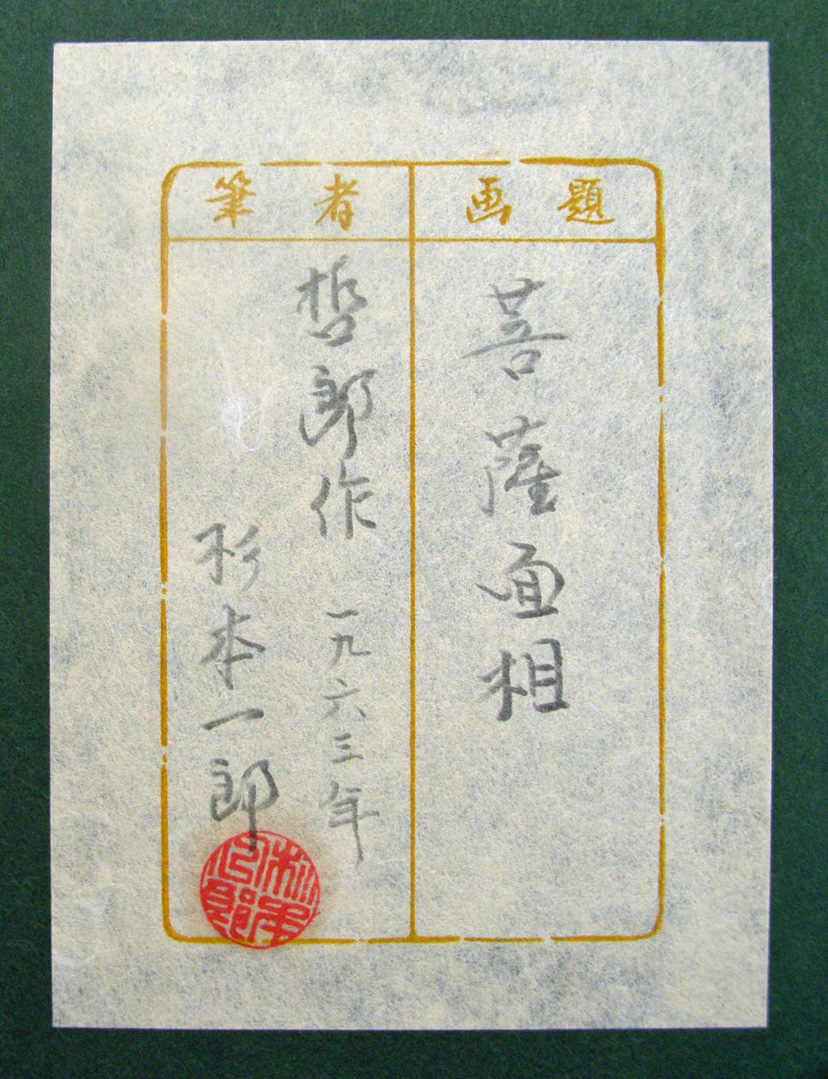 画題
菩薩面相
筆者
哲郎作 一九六三年
杉本一郎